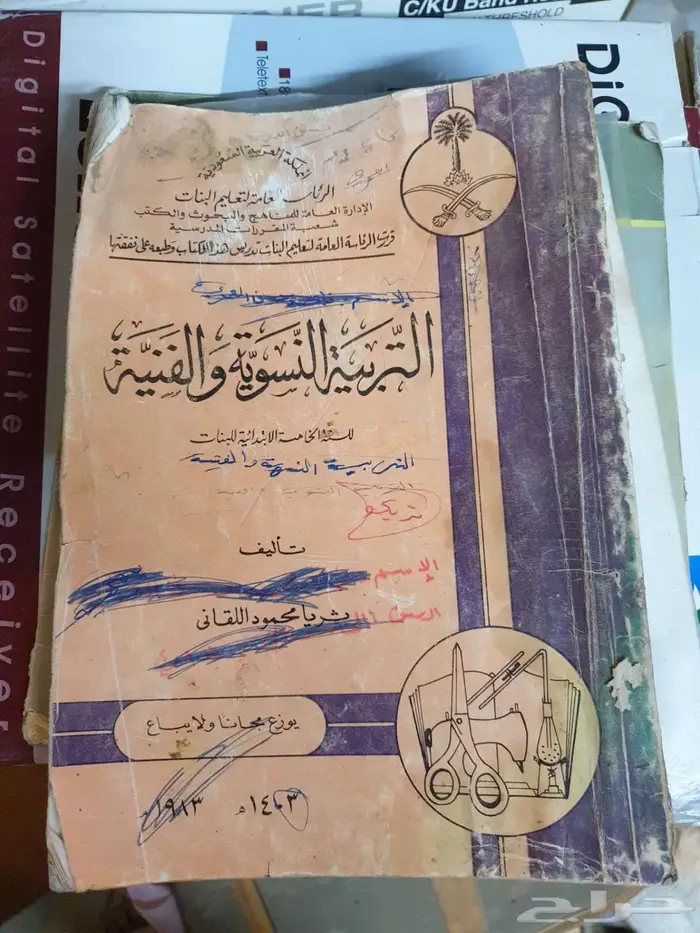 C/KU Band
THRESHOLD
Digital Satellite Receiver
Teletext
المملكة العربية السعودية
الرئاسة العامة لتعليم البنات
الإدارة العامة للمناهج والبحوث والكتب
شعبة المقررات المدرسية
قررت الرئاسة العامة لتعليم البنات تدريس هذا الكتاب وطبعه على نفقتها
الإسم
التربية النسوية والفنية
للسنة الخامسة الابتدائية للبنات
التربية النسوية والفنية
تأليف
الإسم
ثريا محمود اللقاني
يوزع مجانا ولا يباع
١٤٠٣ هـ ١٩٨٣
حراج